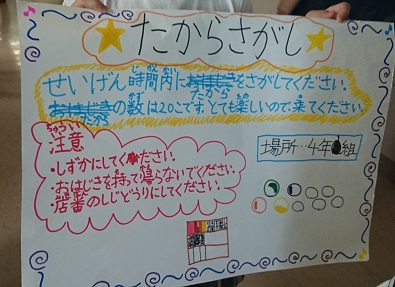 たからさがし
せいげん時間内におはじきをさがしてください。
たから
おはじきの数は20こです。とても楽しいので来てください。
ちゅうい
注意
・しずかにしてください。
・おはじきを持って帰らないでください。
・店番のしじどうりにしてください。
場所…4年 組